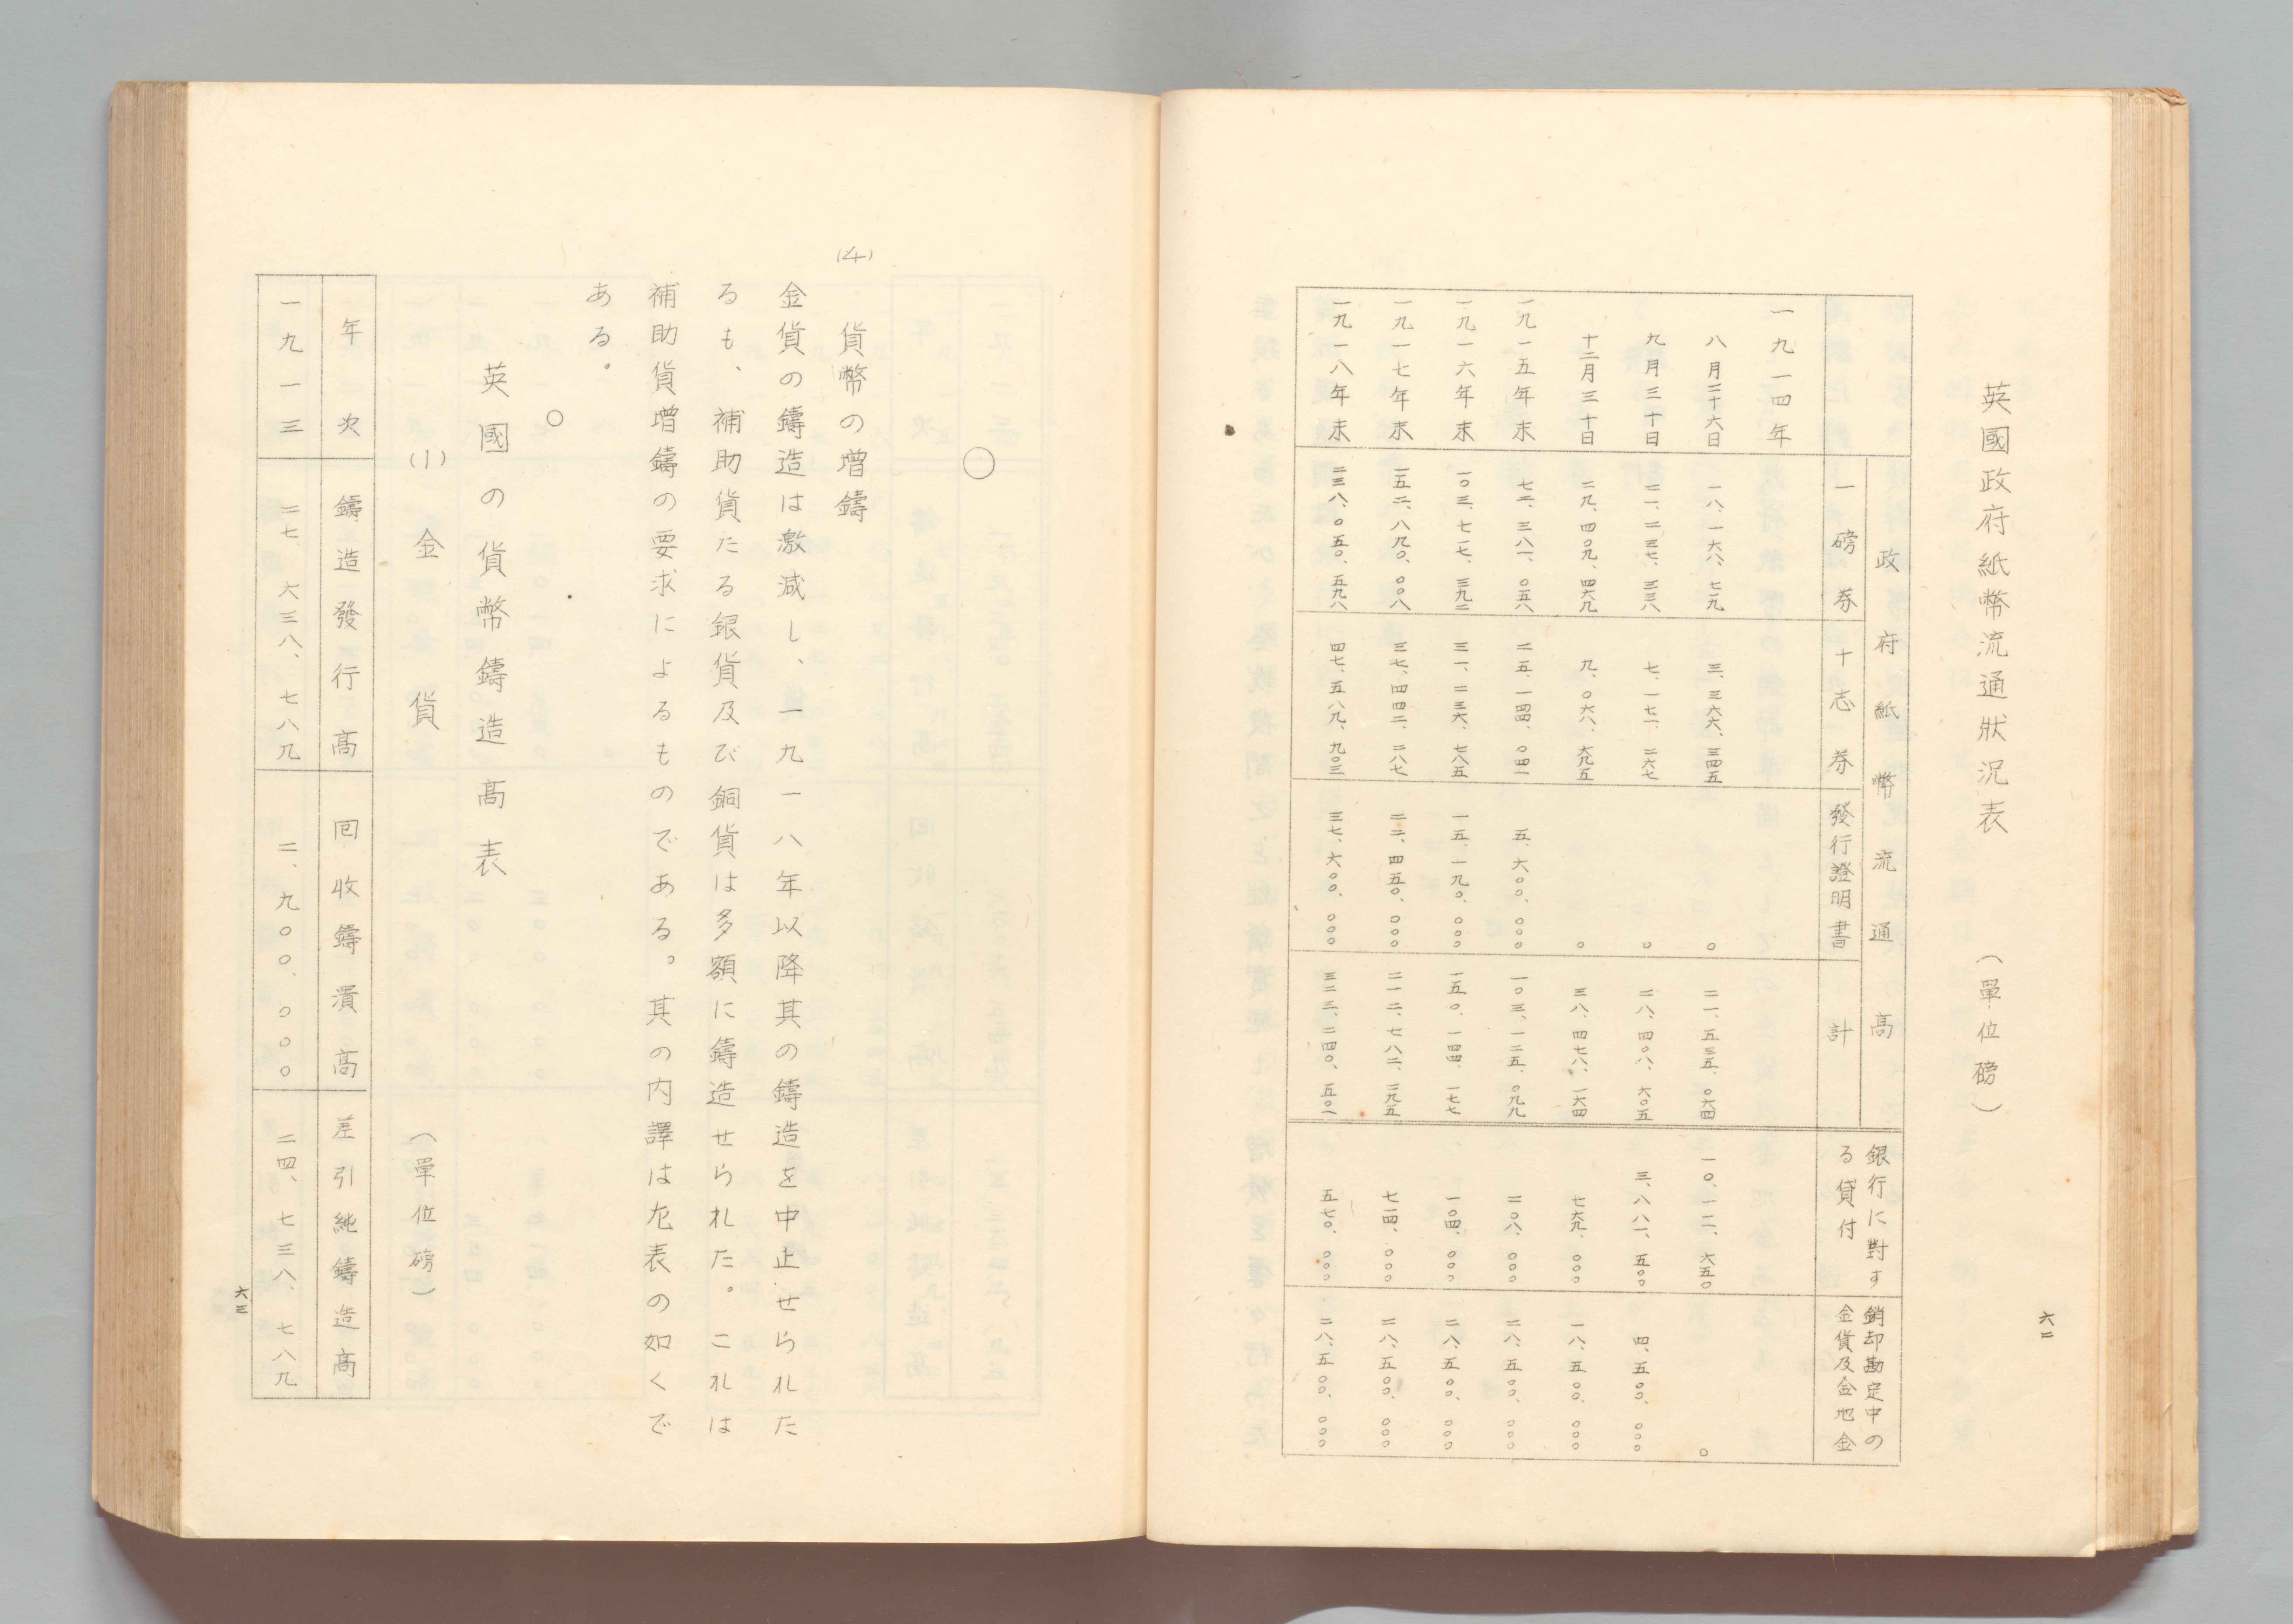 英國政府紙幣流通狀況表　（單位磅）
政府紙幣流通高
一磅券
十志券
發行證明書
計
銀行に對する貸付
銷却勘定中の金貨及金地金
一九一四年
八月二十六日　一八、一六八、七一九　三、三六六、三四五　〇　二一、五三五、〇六四　一〇、一一一、六五〇　〇
九月三十日　二一、二三七、三三八　七、一七一、二六七　〇　二八、四〇八、六〇五　三、八八一、五〇〇　四、五〇〇、〇〇〇
十二月三十日　二九、四〇九、四六九　九、〇六八、六九五　〇　三八、四七八、一六四　七六九、〇〇〇　一八、五〇〇、〇〇〇
一九一五年末　七二、三八一、〇五八　二五、一四四、〇四一　五、六〇〇、〇〇〇　一〇三、一二五、〇九九　二〇八、〇〇〇　二八、五〇〇、〇〇〇
一九一六年末　一〇三、七一七、三九二　三一、二三六、七八五　一五、一九〇、〇〇〇　一五〇、一四四、一七七　一〇四、〇〇〇　二八、五〇〇、〇〇〇
一九一七年末　一五二、八九〇、〇〇八　三七、四四二、二八七　二二、四五〇、〇〇〇　二一二、七八二、二九五　七一四、〇〇〇　二八、五〇〇、〇〇〇
一九一八年末　二三八、〇五〇、五九八　四七、五八九、九〇三　三七、六〇〇、〇〇〇　三二三、二四〇、五〇一　五七〇、〇〇〇　二八、五〇〇、〇〇〇
六二
〇
(4)　貨幣の増鑄
金貨の鑄造は激減し、一九一八年以降其の鑄造を中止せられた
るも、補助貨たる銀貨及び銅貨は多額に鑄造せられた。これは
補助貨増鑄の要求によるものである。其の內譯は左表の如くで
ある。
〇
英國の貨幣鑄造高表
(1)　金貨　（單位磅）
年次　鑄造發行高　回收鑄潰高　差引純鑄造高
一九一三　二七、六三八、七八九　二、九〇〇、〇〇〇　二四、七三八、七八九
六三